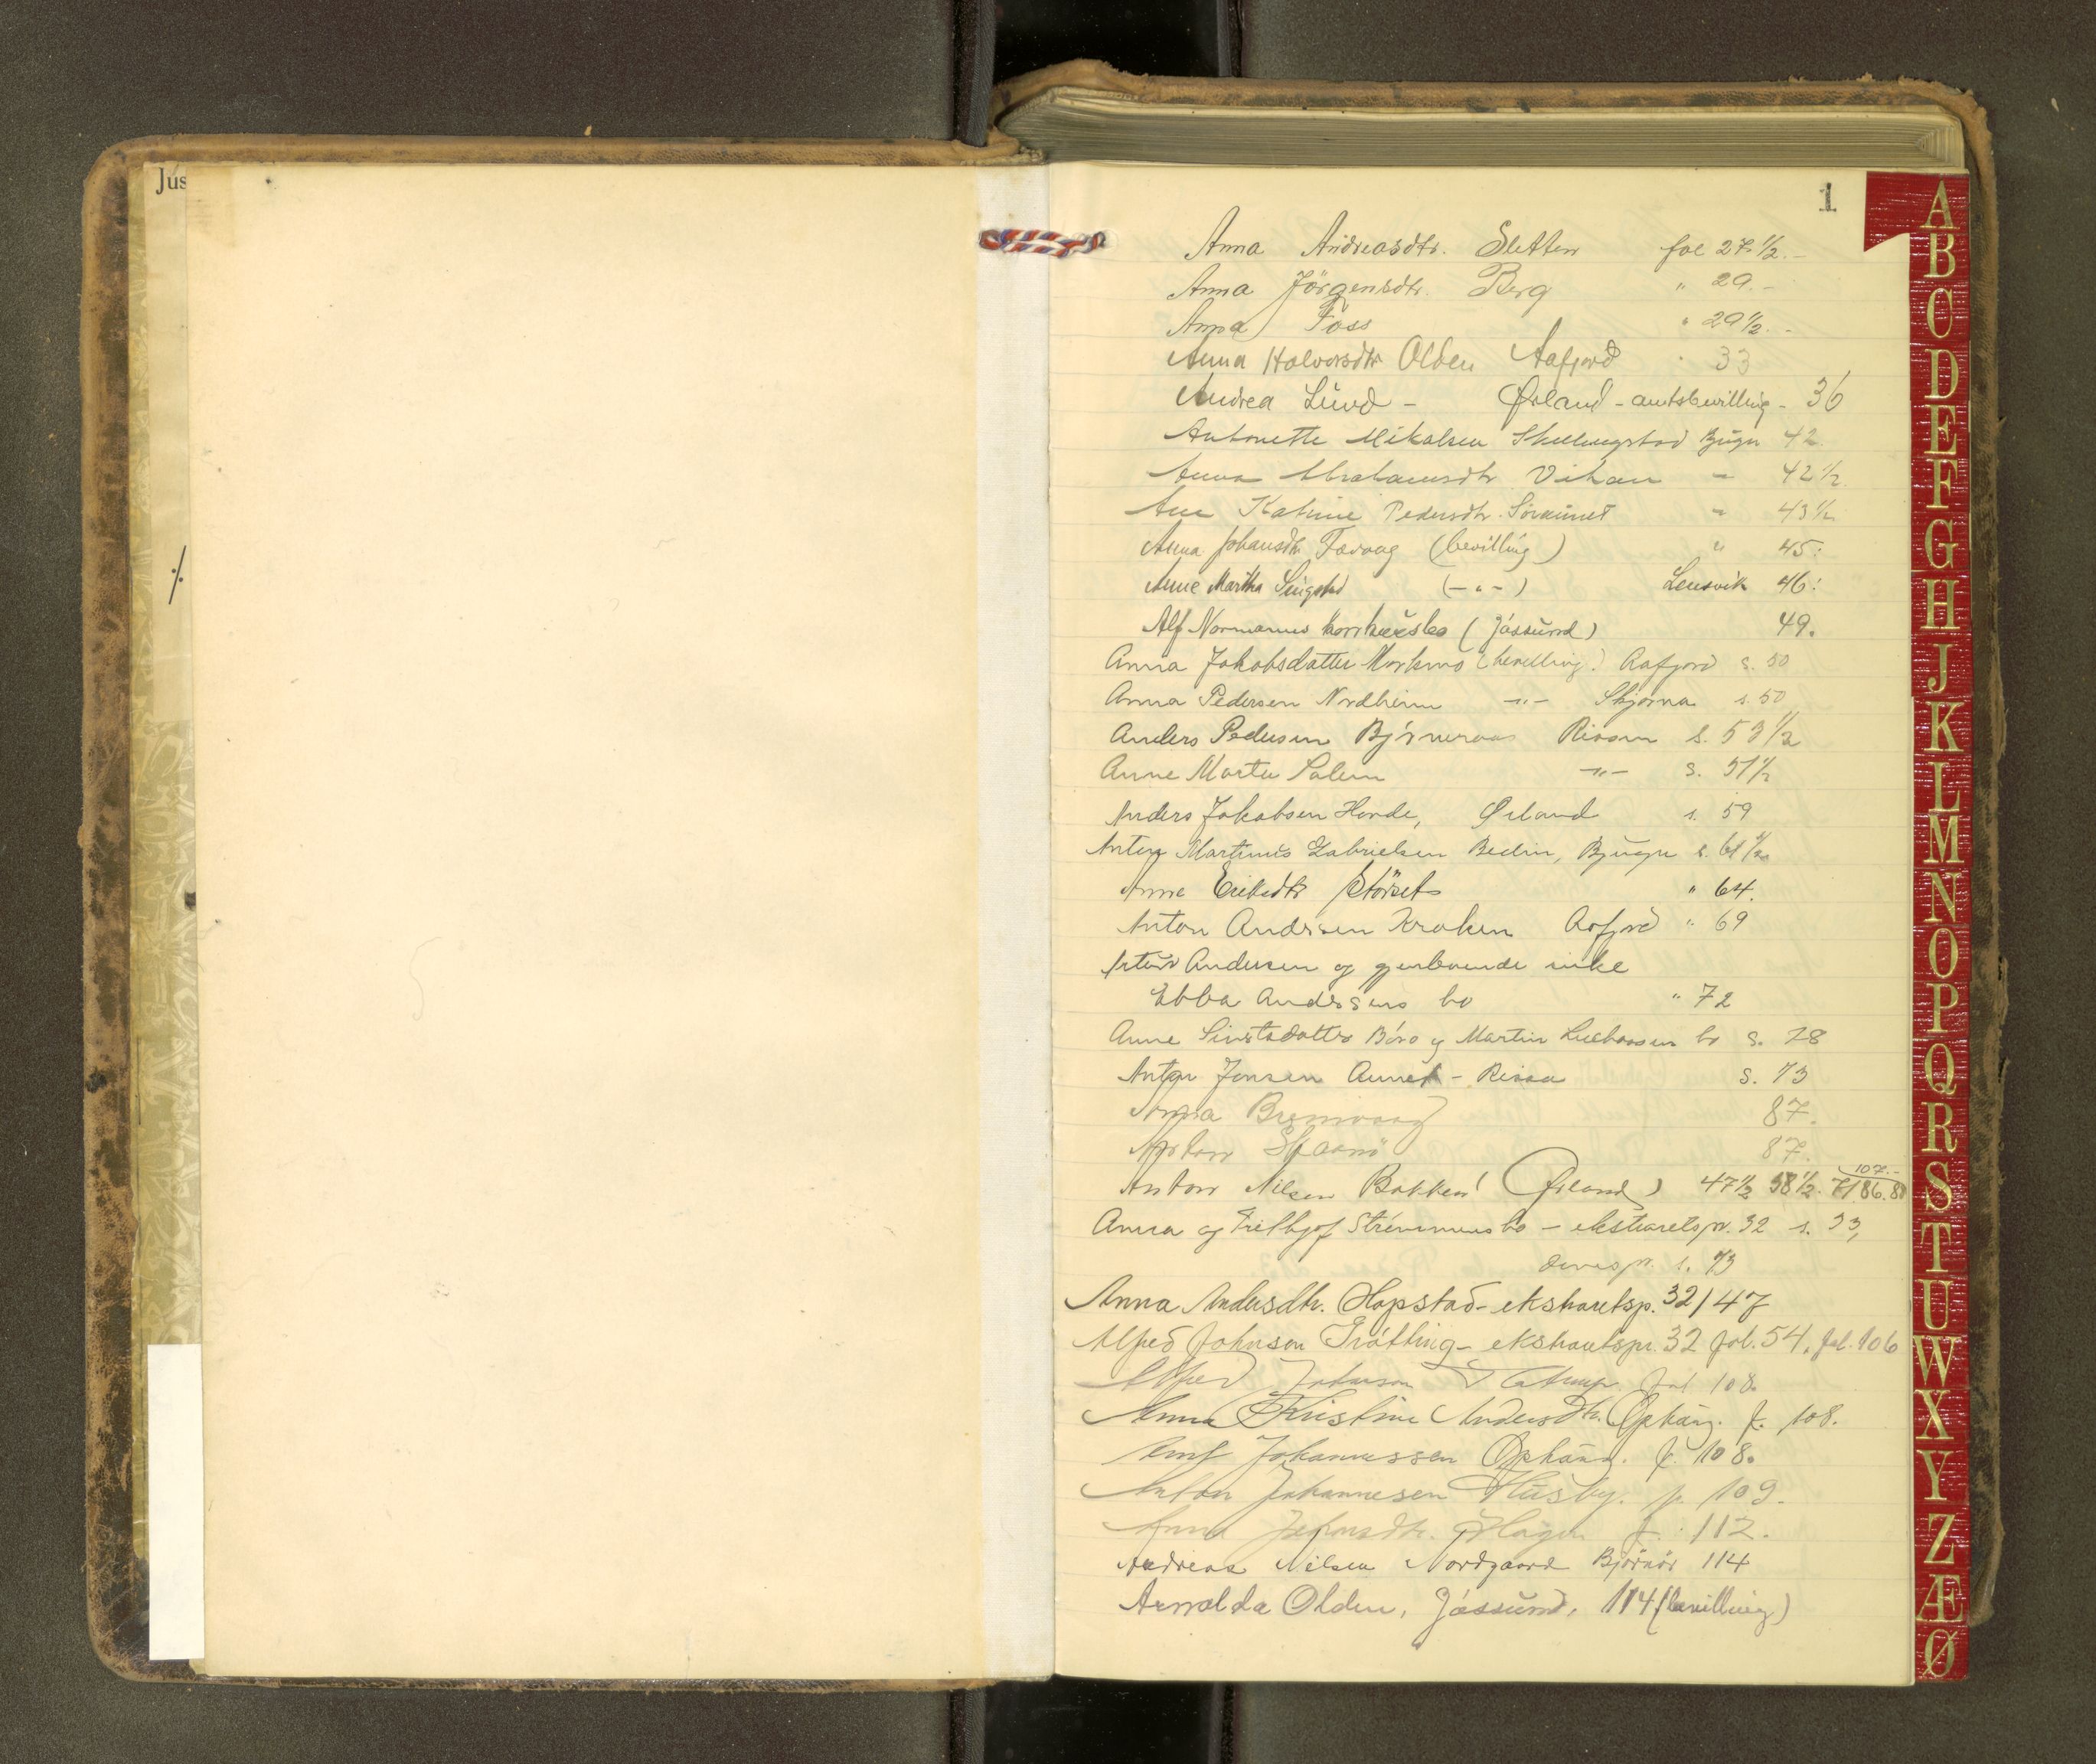 Jus
1
Anna Andreasdtr. Sletten fol 27 1/2.-
Anna Jörgensdtr. Berg " 29.-
Anna Foss " 29 1/2.-
Anna Halvorsdtr Olden Aafjord " 33
Andrea Lund - Ørland - amtsbevilling - 36
Antonette Mikalsen Bjugn 42
Anna Abrahamsdtr Vikan - 42 1/2
Ane Katrine Pedersdtr. - 43 1/2
Anna Johansdtr Tarvaag (bevilling) " 45:
Anne Martha Singstad (-"-) Lensvik 46:
Alf Normanns (Jössund) 49.
Anna Jakobsdatter Morkmo (bevilling.) Aafjord s. 50
Anna Pedersen Nordheim -"- Skjørna s. 50
Anders Pedersen Rissen s. 53 1/2
Anne Marta Salem -"- s. 51 1/2
Anders Jakobsen Hovde, Ørland s. 59
Anton Martinus Gabrielsen Bedin, Bjugn s. 61 1/2
Anne Eriksdtr Störset " 64.
Anton Andersen Kroken Aafjord " 69
Artur Andersen og gjenlevende enke
Ebba Andersens bo " 72
Anne Böro og Martin bo s. 78
Anton Jensen Aunet - Rissa s. 73
Anna 87.
87.
Anton Nilsen Bakken (Ørland) 47 1/2 58 1/2 71 86. 107.-
Anna og Fritjof Strömmens bo - ekstraretspr. 32 s. 33,
s. 73
Anna Andersdtr. Hopstad - ekstraretsp. 32/47
Alfred Johnson Grötting - ekstraretspr. 32 fol. 54. fol. 106
Alfred Johnson fol 108.
Anna Kristine Andersdtr. Ophaug. f. 108.
Johannessen Ophaug. f. 108.
Anton Johannesen Husby. f. 109.
Anna Hagen f. 112.
Andreas Nilsen Nordgaard Björnör 114
Arnolda Olden, Jössund, 114 (bevilling)
A
B
C
D
E
F
G
H
J
K
L
M
N
O
P
Q
R
S
T
U
W
X
Y
Z
Æ
Ø